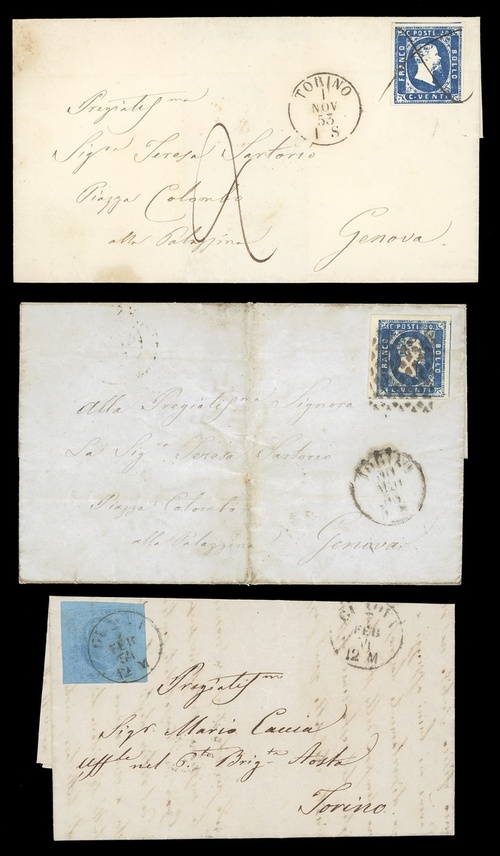 C. POSTE 20
FRANCO
BOLLO
C. VENTI
TORINO
11
NOV
53
1 S
Pregiatis.ma
Sig.ra Teresa Sartorio
Piazza Colombo
alla Palazzina
Genova.
2
C. POSTE 20
FRANCO
BOLLO
C. VENTI
Alla Pregiatis.ma Signora
La Sig.ra Teresa Sartorio
TORINO
Piazza Colombo
alla Palazzina
Genova.
7
FEB
54
12 M
7
FEB
12 M
Pregiatis.mo
Sig.r Mario Caccia
Uff.le nel 6.to Brig.ta Aosta
Torino.